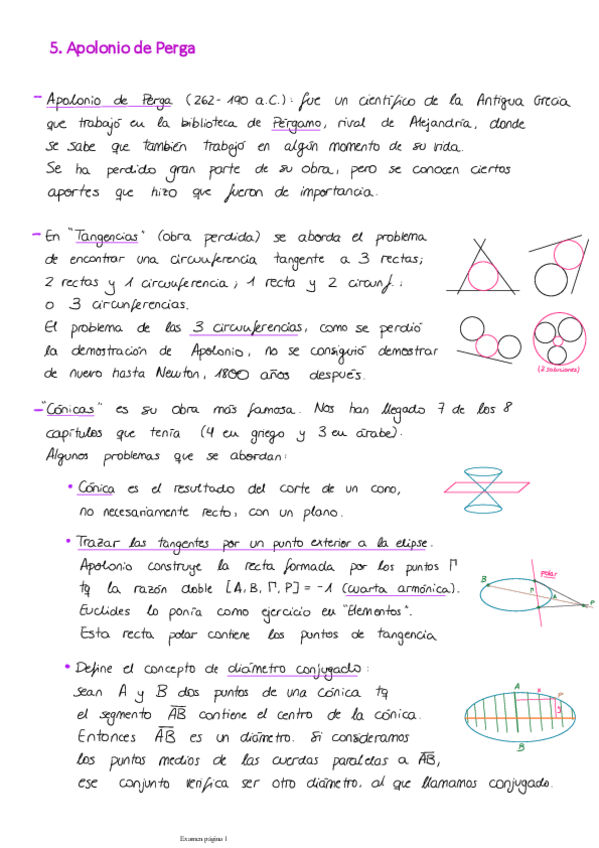 5. Apolonio de Perga
- Apolonio de Perga (262-190 a.C.): fue un científico de la Antigua Grecia
que trabajó en la biblioteca de Pérgamo, rival de Alejandría, donde
se sabe que también trabajó en algún momento de su vida.
Se ha perdido gran parte de su obra, pero se conocen ciertos
aportes que hizo que fueron de importancia.
- En "Tangencias" (obra perdida) se aborda el problema
de encontrar una circunferencia tangente a 3 rectas;
2 rectas y 1 circunferencia; 1 recta y 2 circunf.;
o 3 circunferencias.
El problema de las 3 circunferencias, como se perdió
la demostración de Apolonio, no se consiguió demostrar
de nuevo hasta Newton, 1800 años después.
(2 soluciones)
- "Cónicas" es su obra más famosa. Nos han llegado 7 de los 8
capítulos que tenía (4 en griego y 3 en árabe).
Algunos problemas que se abordan:
• Cónica es el resultado del corte de un cono,
no necesariamente recto, con un plano.
• Trazar las tangentes por un punto exterior a la elipse.
Apolonio construye la recta formada por los puntos Γ
tq la razón doble [A, B, Γ, P] = -1 (cuarta armónica).
Euclides lo ponía como ejercicio en "Elementos".
Esta recta polar contiene los puntos de tangencia
polar
B
Γ
A
P
• Define el concepto de diámetro conjugado:
sean A y B dos puntos de una cónica tq
el segmento A̅B̅ contiene el centro de la cónica.
Entonces A̅B̅ es un diámetro. Si consideramos
los puntos medios de las cuerdas paralelas a A̅B̅,
ese conjunto verifica ser otro diámetro, al que llamamos conjugado.
A
x
P
y
B
Examen página 1